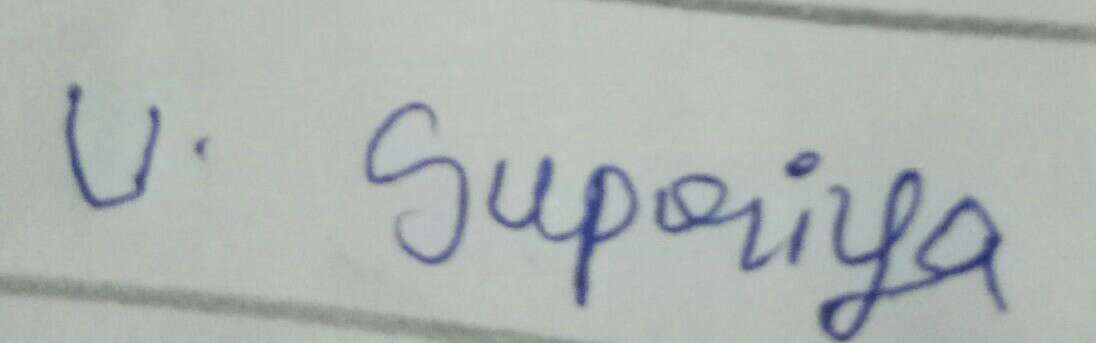 V. Supriya